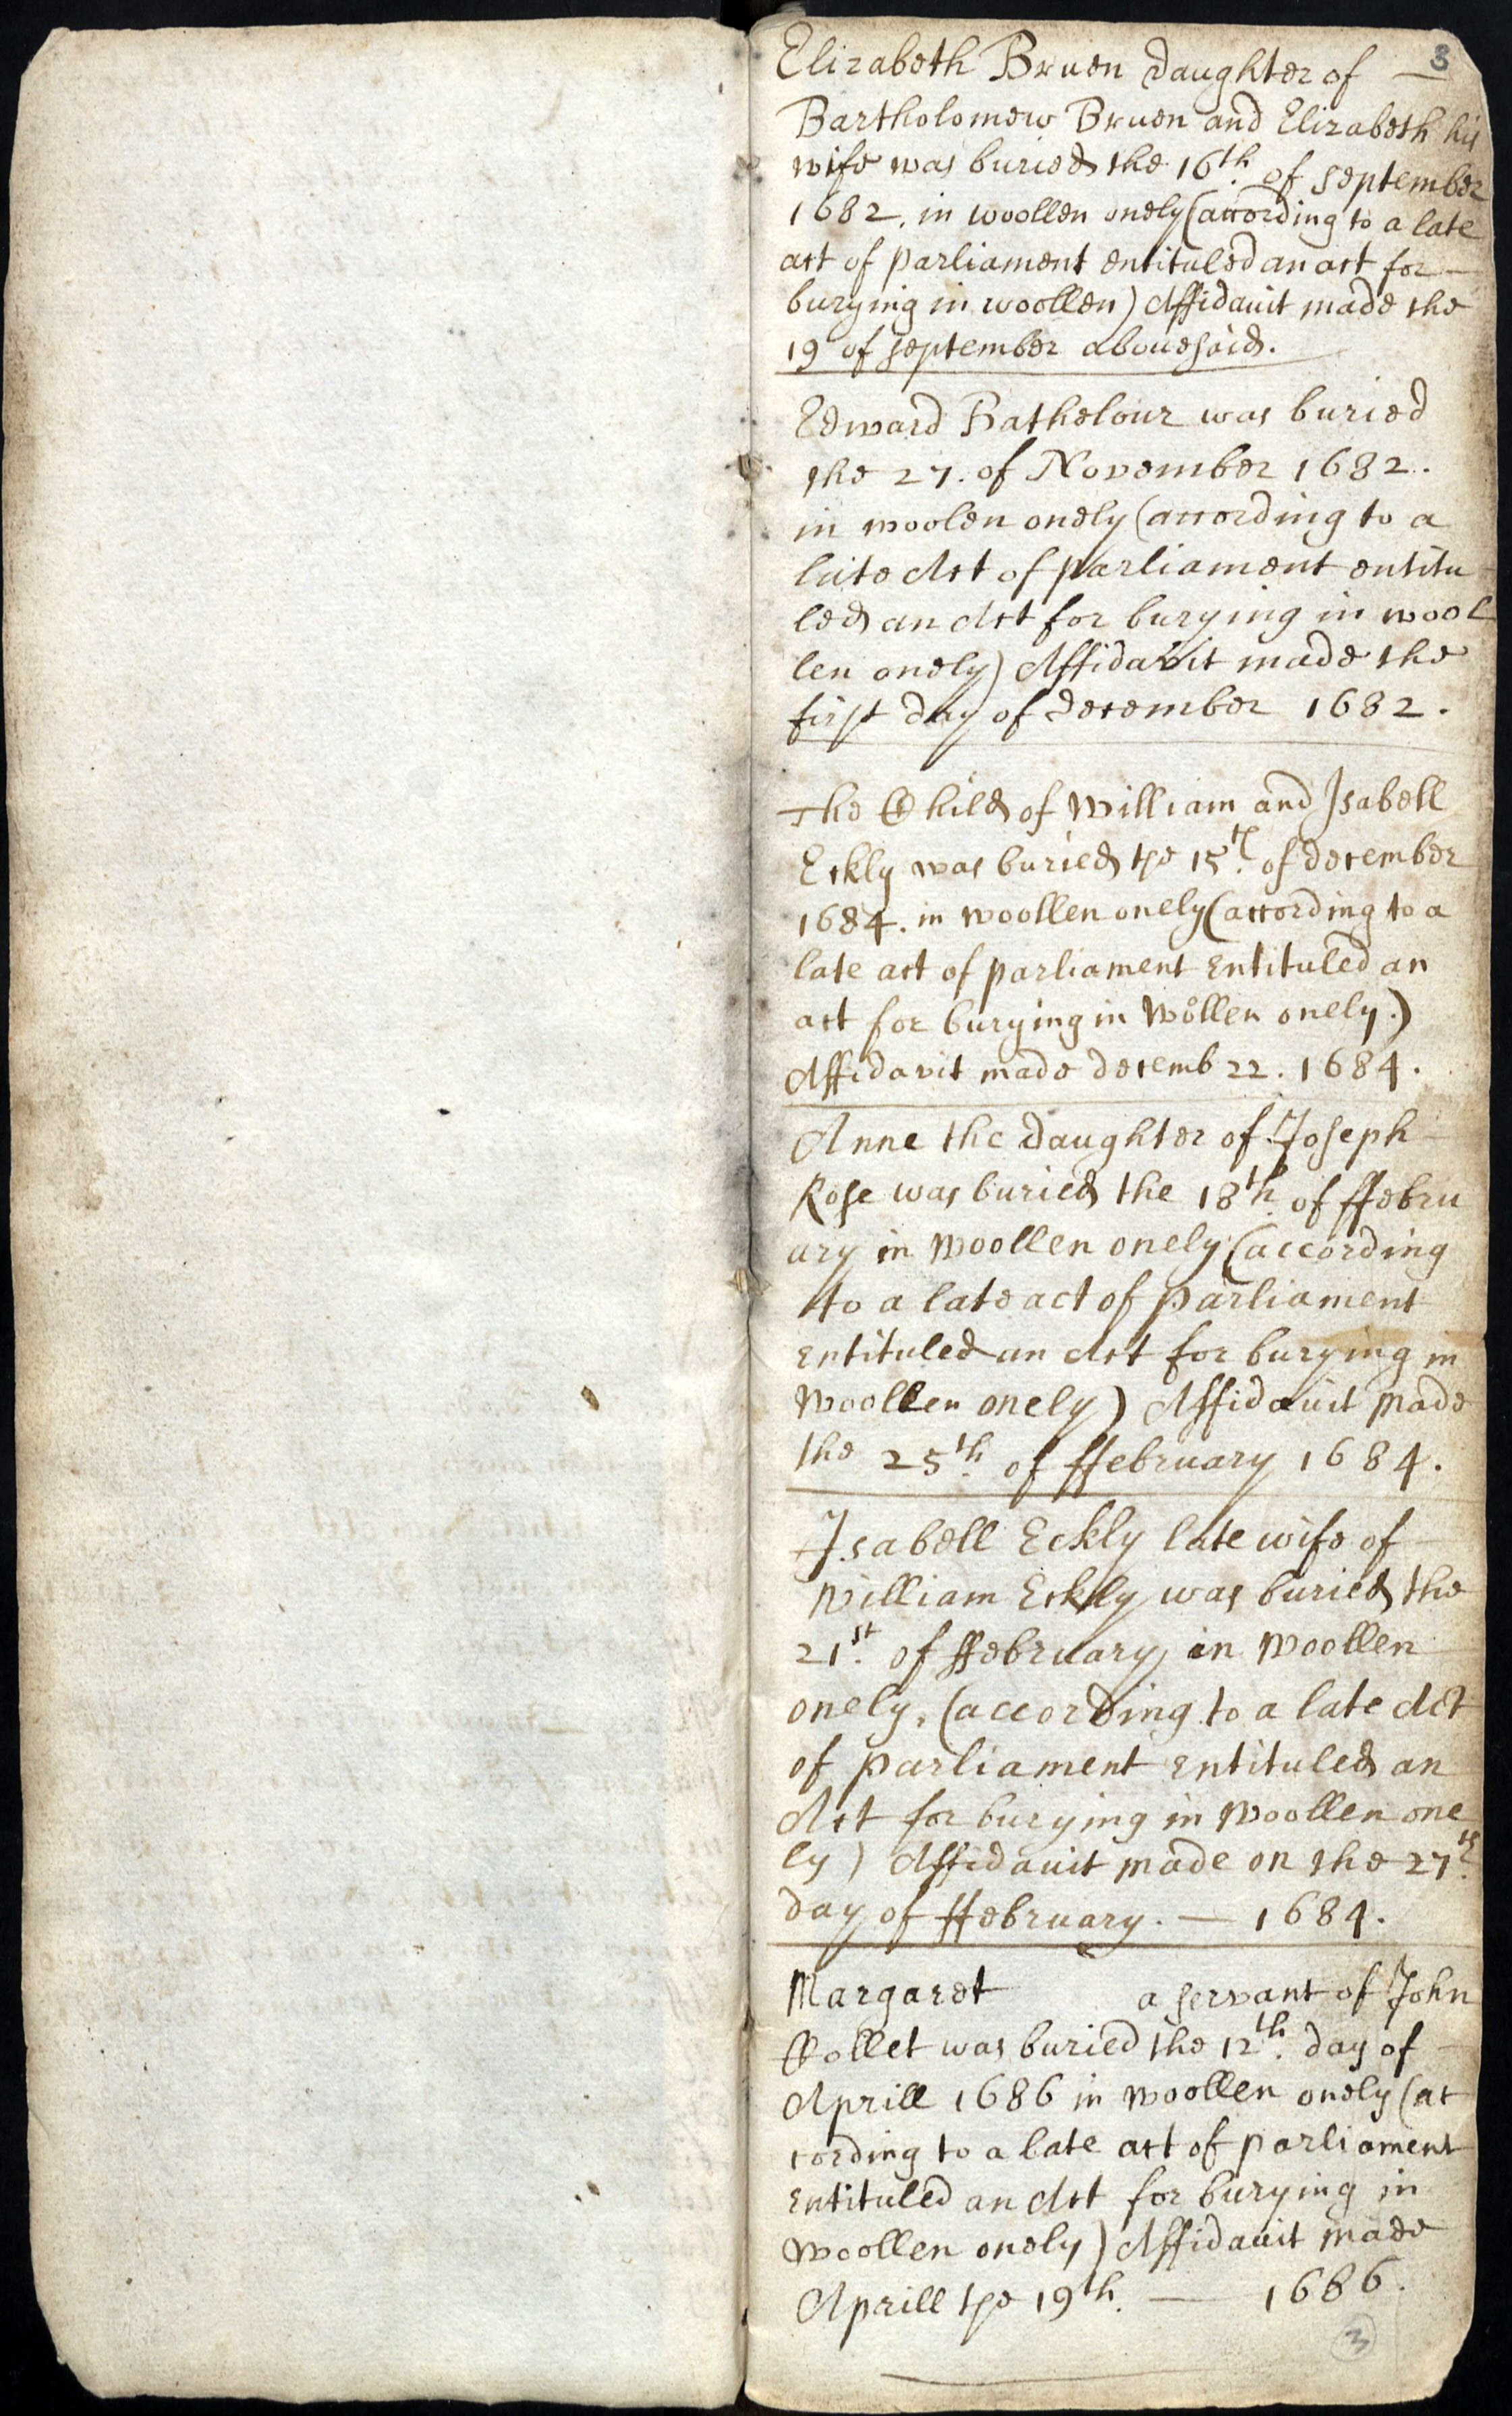 3
Elizabeth Bruen daughter of
Bartholomew Bruen and Elizabeth his
wife was buried the 16th. of september
1682. in woollen onely (according to a late
act of parliament entituled an act for
burying in woollen) Affidauit made the
19 of september abouesaid.
Edward Bathelour was buried
the 27. of November 1682.
in woolen onely (according to a
late Act of parliament entitu
led an Act for burying in wool
len onely) Affidavit made the
first day of december 1682.
The Child of William and Isabell
Eckly was buried the 15th. of december
1684. in woollen onely (according to a
late act of parliament entituled an
act for burying in wollen onely.)
Affidavit made decemb 22. 1684.
Anne the daughter of Joseph
Rose was buried the 18th. of ffebru
ary in woollen onely (according
to a late act of parliament
entituled an Act for burying in
woollen onely) Affidauit made
the 25th. of ffebruary 1684.
Isabell Eckly late wife of
William Eckly was buried the
21st. of ffebruary in woollen
onely, (according to a late Act
of parliament entituled an
Act for burying in woollen one
ly) Affidauit made on the 27th.
day of ffebruary. — 1684.
Margaret a servant of John
ffollet was buried the 12th. day of
Aprill 1686 in woollen onely (ac
cording to a late act of parliament
entituled an Act for burying in
woollen onely) Affidauit made
Aprill the 19th. — 1686.
3